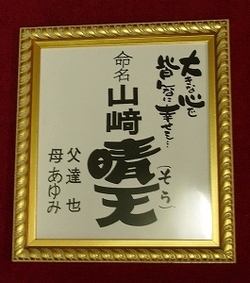 大きな心で
皆に幸せを…
命名
山﨑
晴天
(そら)
父 達也
母 あゆみ